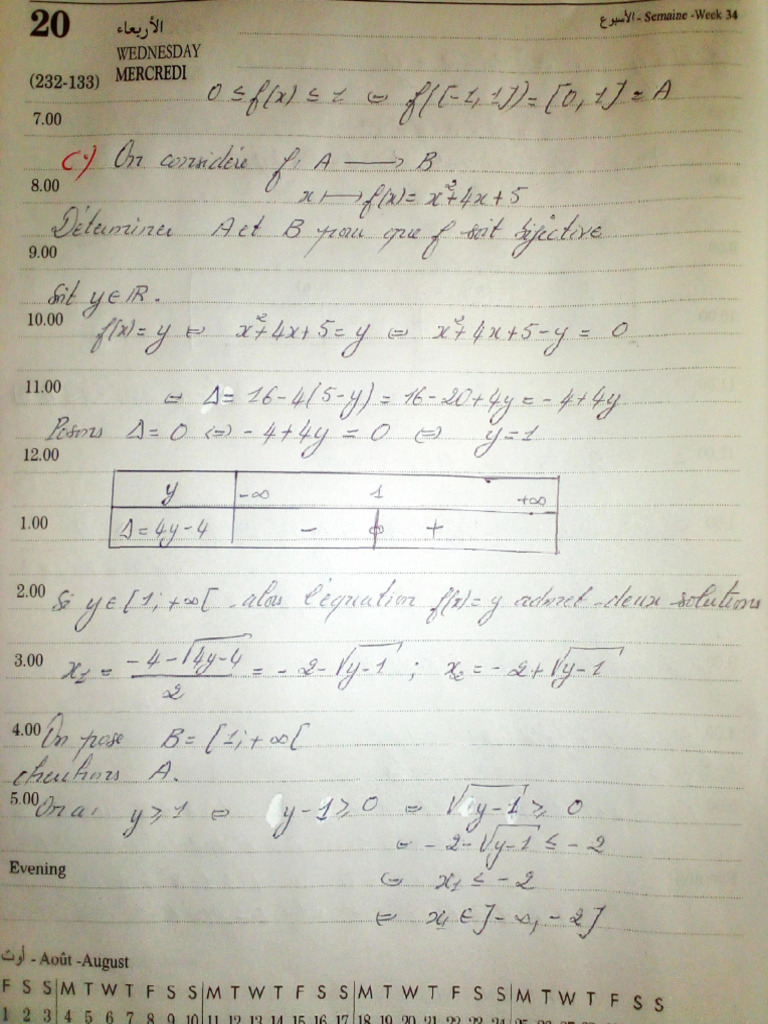 20 الأربعاء الأسبوع - Semaine -Week 34
WEDNESDAY
(232-133) MERCREDI
0 ≤ f(x) ≤ 1 ⇔ f([-1,1]) = [0,1] = A
7.00
C) On considère f: A ⟶ B
8.00
x ⟼ f(x) = x²+4x+5
Déterminer A et B pour que f soit bijective
9.00
Soit y∈ℝ.
10.00
f(x)=y ⇔ x²+4x+5=y ⇔ x²+4x+5-y = 0
11.00
⇔ Δ= 16-4(5-y) = 16-20+4y = -4+4y
Posons Δ=0 ⇔ -4+4y = 0 ⇔ y=1
12.00
y -∞ 1 +∞
1.00 Δ=4y-4 - 0 +
2.00 Si y∈[1;+∞[ alors l'équation f(x)=y admet deux solutions
3.00 x₁ = (-4-√(4y-4))/2 = -2-√(y-1) ; x₂ = -2+√(y-1)
4.00 On pose B=[1;+∞[
cherchons A.
5.00 On a: y≥1 ⇔ y-1≥0 ⇔ √(y-1) ≥ 0
⇔ -2-√(y-1) ≤ -2
⇔ x₁ ≤ -2
Evening
⇔ x₁ ∈ ]-∞,-2]
أوت - Août -August
F S S M T W T F S S M T W T F S S M T W T F S S M T W T F S S
1 2 3 4 5 6 7 8 9 10 11 12 13 14 15 16 17 18 19 20 21 22 23 24 25 26 27 28